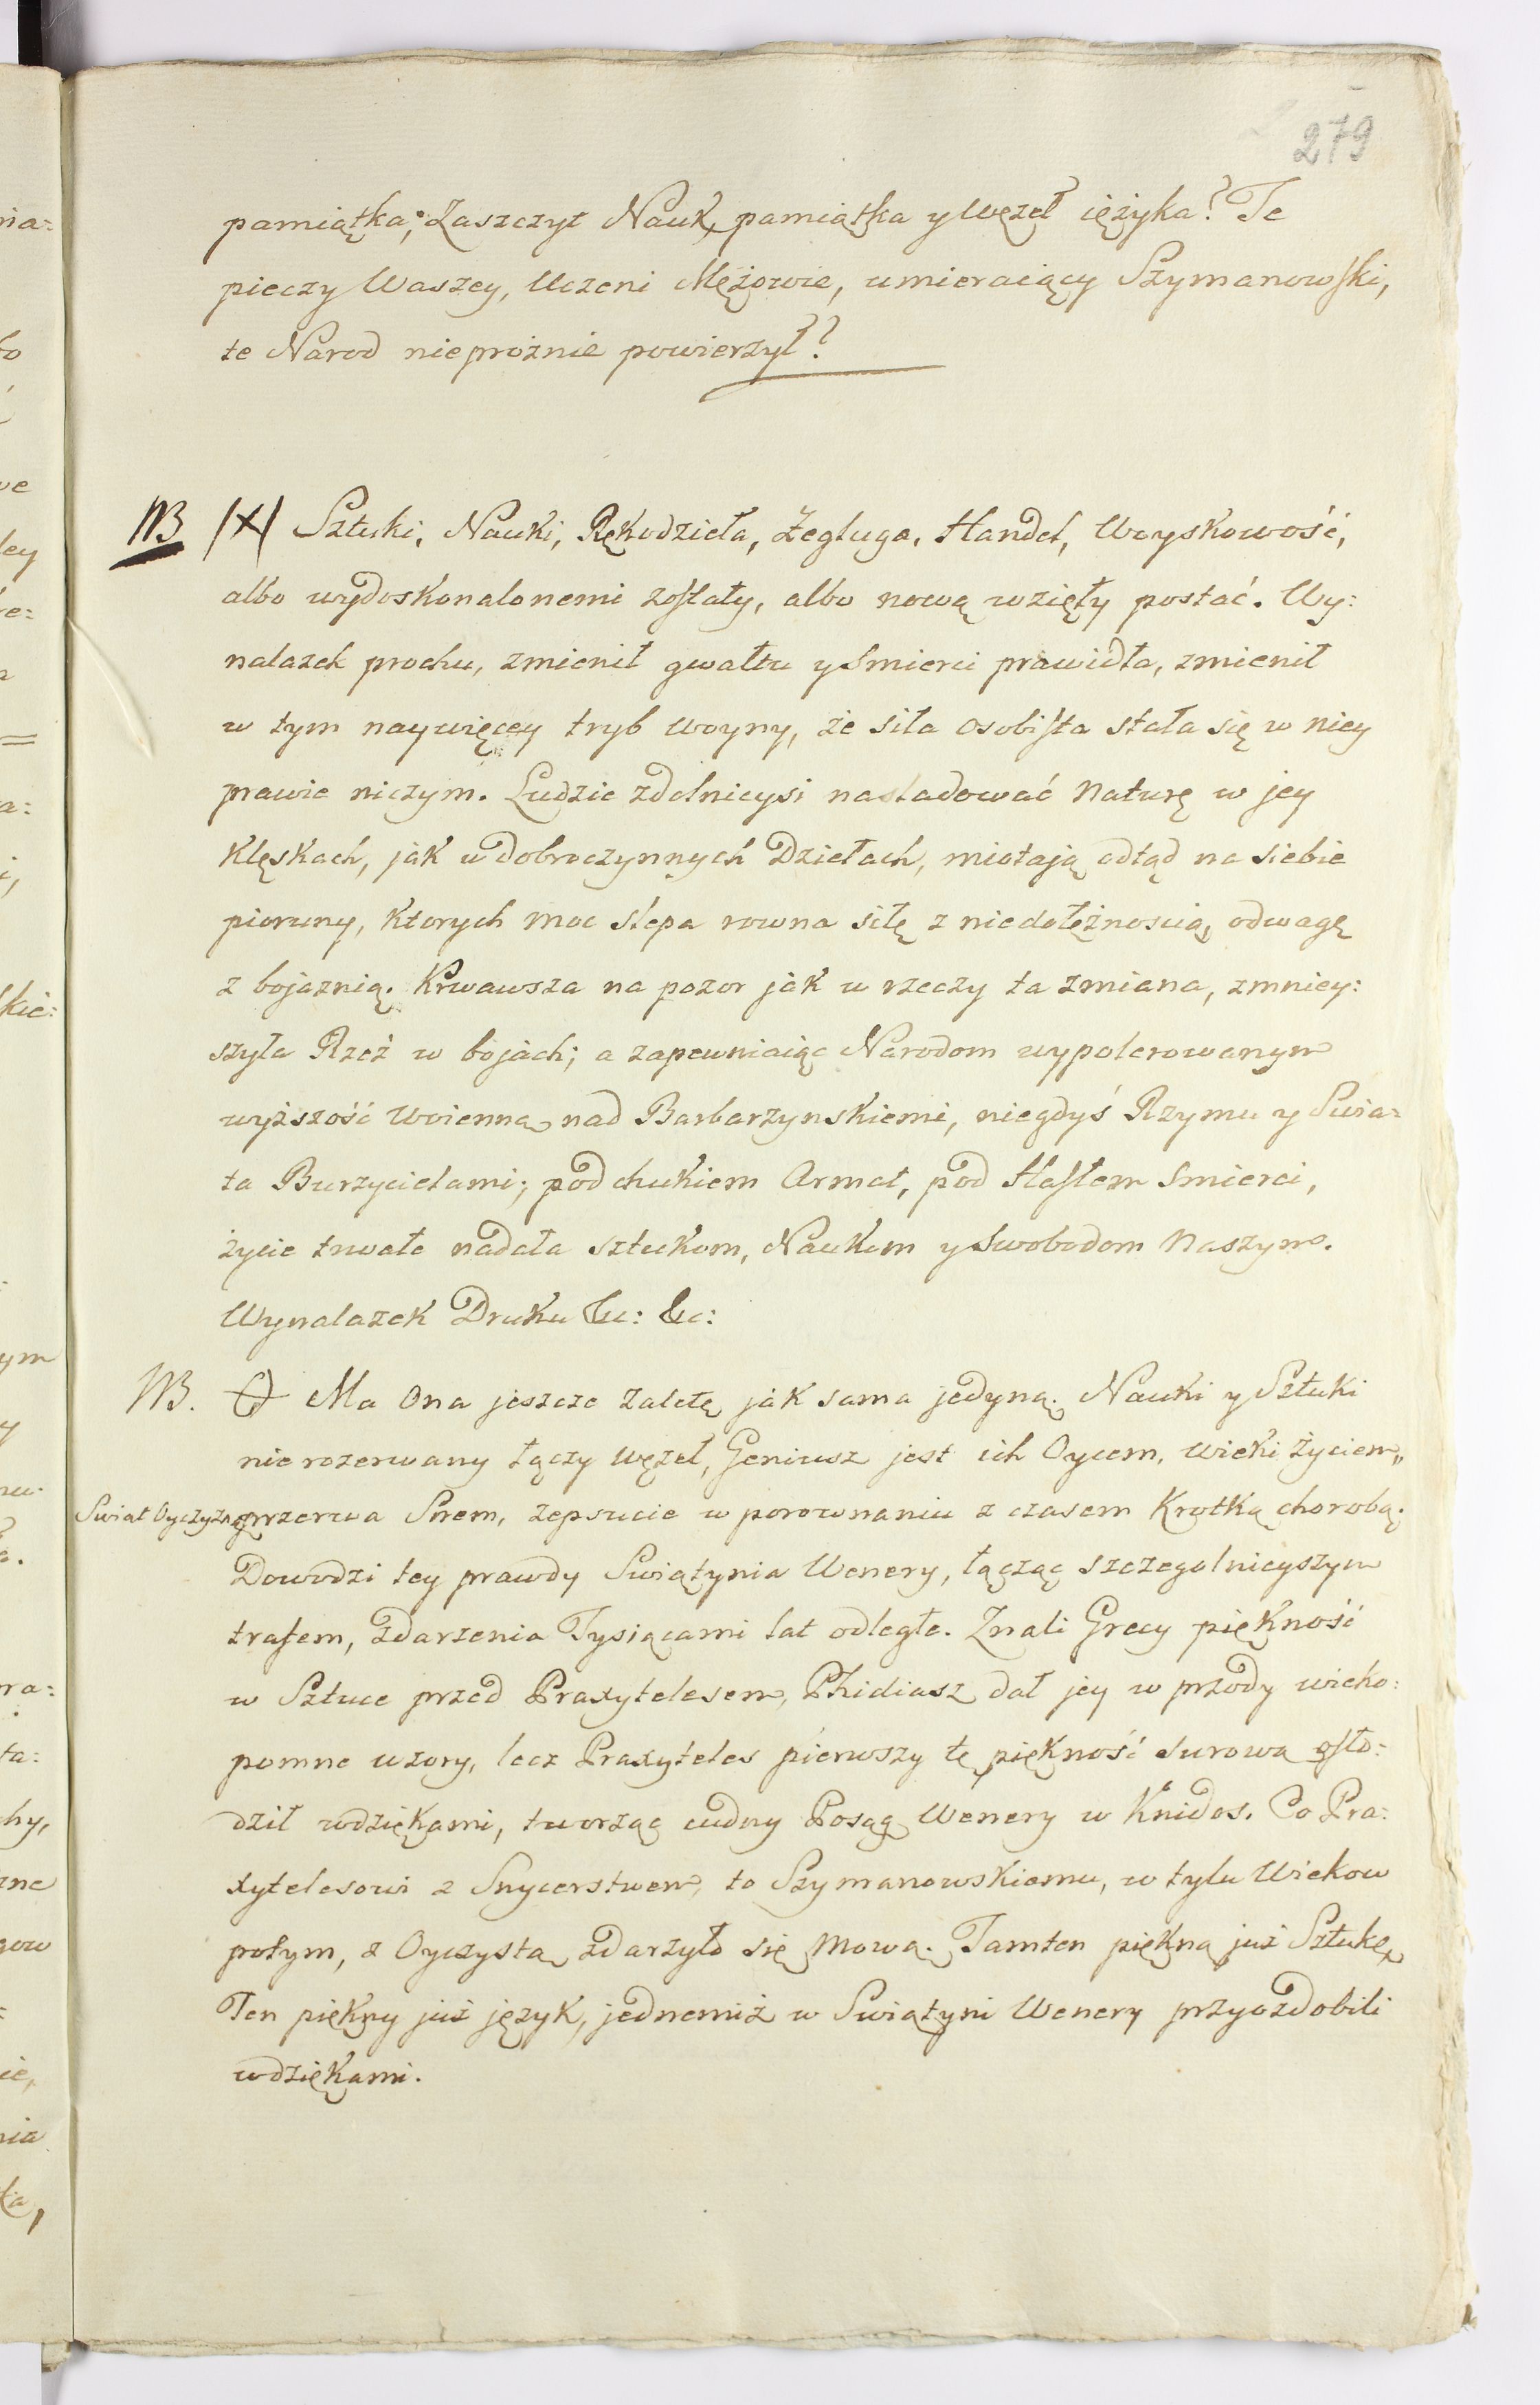 279
pamiątka; Zaszczyt Nauk, pamiątka y Węzeł ięzyka? Te
pieczy Waszey, Uczeni Mężowie, umieraiący Szymanowski,
te Narod nie proznie powierzył?
NB (X) Sztuki, Nauki, Rękodzieła, Zegluga, Handel, Woyskowość,
albo wydoskonalonemi zostały, albo nową wzięły postać. Wy:
nalazek prochu, zmienił gwałtu y Smierci prawidła, zmienił
w tym naywięcey tryb woyny, że siła osobista stała się w niey
prawie niczym. Ludzie zdolnieysi nasladować Naturę w jey
Klęskach, jak w dobroczynnych Dziełach, miotają odtąd na siebie
pioruny, Ktorych moc slepa rowna siłę z niedołężnoscią, odwagę
z bojaznią. Krwawsza na pozor jak w rzeczy ta zmiana, zmniey:
szyła Rzeź w bojach; a zapewniaiąc Narodom wypolerowanym
wyższość Woienną nad Barbarzynskiemi, niegdyś Rzymu y Swia:
ta Burzycielami; pod chukiem Armat, pod Hasłem Smierci,
życie trwałe nadała sztukom, Naukom y Swobodom Naszym.
Wynalazek Druku &c: &c:
NB. Ma Ona jeszcze Zaletę jak sama jedyną. Nauki y Sztuki
nierozerwany łączy węzeł, Geniusz jest ich Oycem, wieki życiem,
Swiat Oyczyzną, przerwa Snem, zepsucie w porownaniu z czasem Krotką chorobą.
Dowodzi tey prawdy Swiątynia Wenery, łącząc szczegolnieyszym
trafem, zdarzenia Tysiącami lat odległe. Znali Grecy piękność
w Sztuce przed Praxytelesem, Phidiasz dał jey w przody wieko:
pomne wzory, lecz Praxyteles pierwszy tę piękność surową osło:
dził wdziękami, tworząc cudny Posąg Wenery w Knidos. Co Pra:
xytelesowi z Snycerstwem, to Szymanowskiemu, w tylu Wiekow
potym, z Oyczystą zdarzyło się Mową. Tamten piękną już Sztukę,
Ten piękny już język, jednemiż w Swiątyni Wenery przyozdobili
wdziękami.